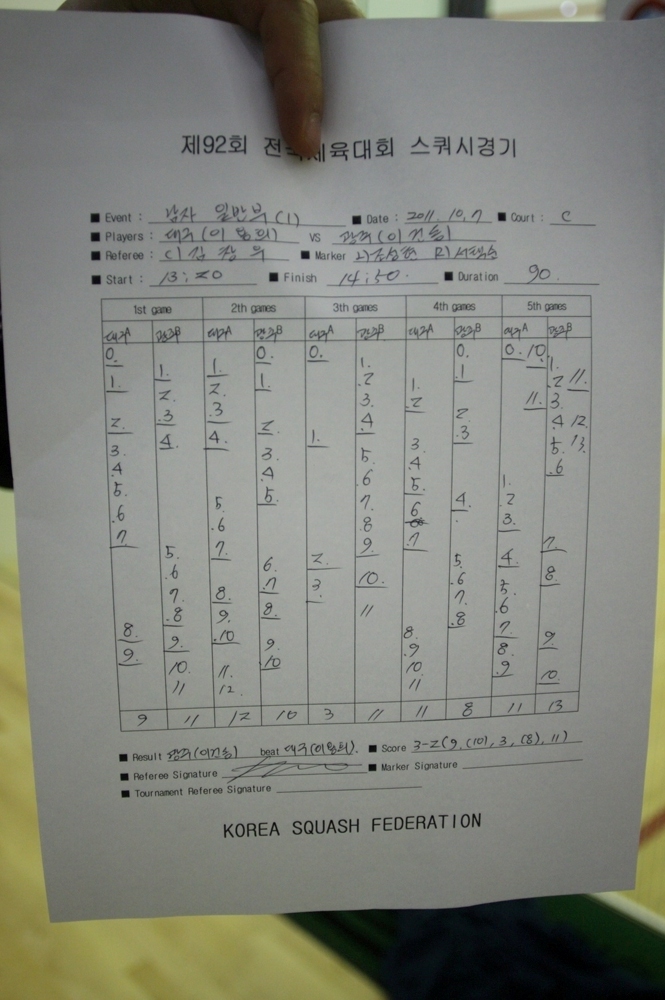 제92회 전국체육대회 스쿼시경기
■ Event : 남자 일반부 (1) ■ Date : 2011. 10. 7 ■ Court : C
■ Players : 대구 (이 ) VS 광주 (이 )
■ Referee : C) 김 ■ Marker
■ Start : 13:20 ■ Finish 14:50. ■ Duration 90.
1st game 2th games 3th games 4th games 5th games
대구A 광주B 대구A 광주B 대구A 광주B 대구A 광주B 대구A 광주B
0. 0. 0. 0. 0. 10.
1. 1. 1. 1. 1. 1. .1 1.
2. 2. .2 .2 .2 11.
.3 .3 3. 11. 3.
2. 4. 4. 2. .4 2. .4 12.
3. 3. 1. 5. 3. .3 5. 13.
.4 .4 6. .4 .6
5. 5. 7. 5. 4. 1.
.6 5. .8 6. . 2
7. .6 9. .7 3.
5. 7. 6. 2. 10. 5. 4. 7.
.6 .7 3. 11 .6 5. 8.
7. 8. 8. 7. .6
.8 9. .8 7.
8. 9. .10 9. 8. 8. 9.
9. 10. 11. 10 .9 .9 10.
11 12. 10
11
9 11 12 10 3 11 11 8 11 13
■ Result 광주 (이 ) beat 대구 (이 ). ■ Score 3-2 (9, (10), 3, (8), 11)
■ Referee Signature ■ Marker Signature
■ Tournament Referee Signature
KOREA SQUASH FEDERATION